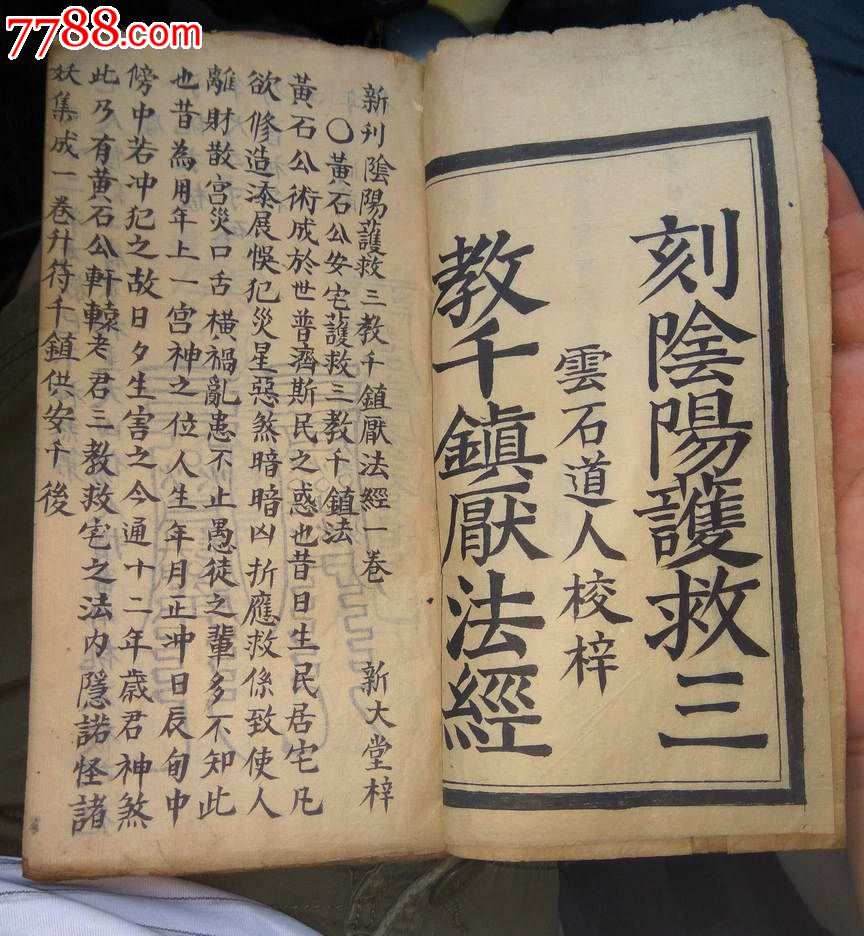 7788.com
刻陰陽護救三
雲石道人校梓
教千鎮厭法經
新刋陰陽護救三教千鎮厭法經一卷 新大堂梓
〇黃石公安宅護救三教千鎮法
黃石公術成於世普濟斯民之惑也昔日生民居宅凡
欲修造添展悞犯災星惡煞暗暗凶折應救係致使人
離財散宫災口舌橫禍亂患不止愚徒之輩多不知此
也昔為用年上一宫神之位人生年月正冲日辰旬中
傍中若冲犯之故日夕生害之今通十二年歲君神煞
此乃有黃石公軒轅老君三教救宅之法内隱諾怪諸
妖集成一卷升符千鎮供安千後